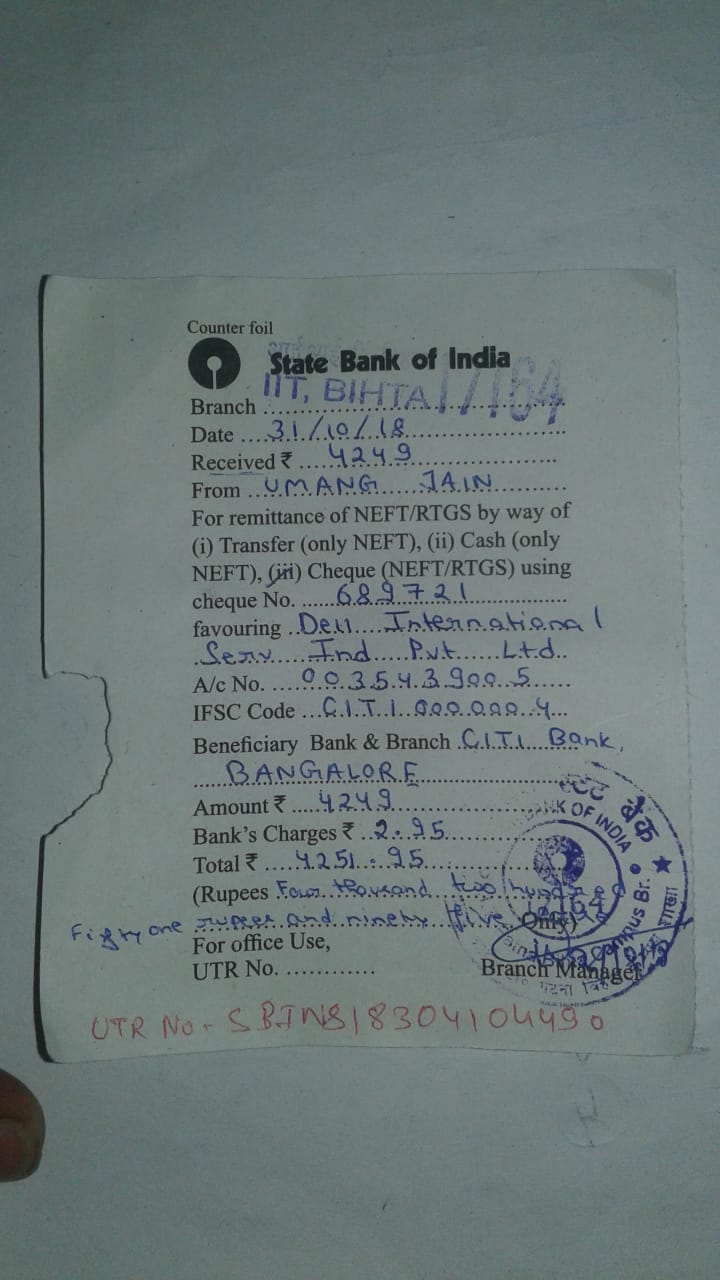 Counter foil
State Bank of India
IIT, BIHTA 17164
Branch
Date 31/10/18
Received ₹ 4249
From UMANG JAIN
For remittance of NEFT/RTGS by way of
(i) Transfer (only NEFT), (ii) Cash (only
NEFT), (iii) Cheque (NEFT/RTGS) using
cheque No. 689721
favouring Dell International
Serv Ind Pvt Ltd
A/c No. 0035439005
IFSC Code CITI0000004
Beneficiary Bank & Branch CITI Bank,
BANGALORE
Amount ₹ 4249
Bank's Charges ₹ 2.95
Total ₹ 4251.95
(Rupees Four thousand two hundred
Fifty one rupees and ninety five Only)
For office Use,
UTR No.
Branch Manager
BANK OF INDIA
बैंक
Campus Br.
UTR No- SBIN818304104490